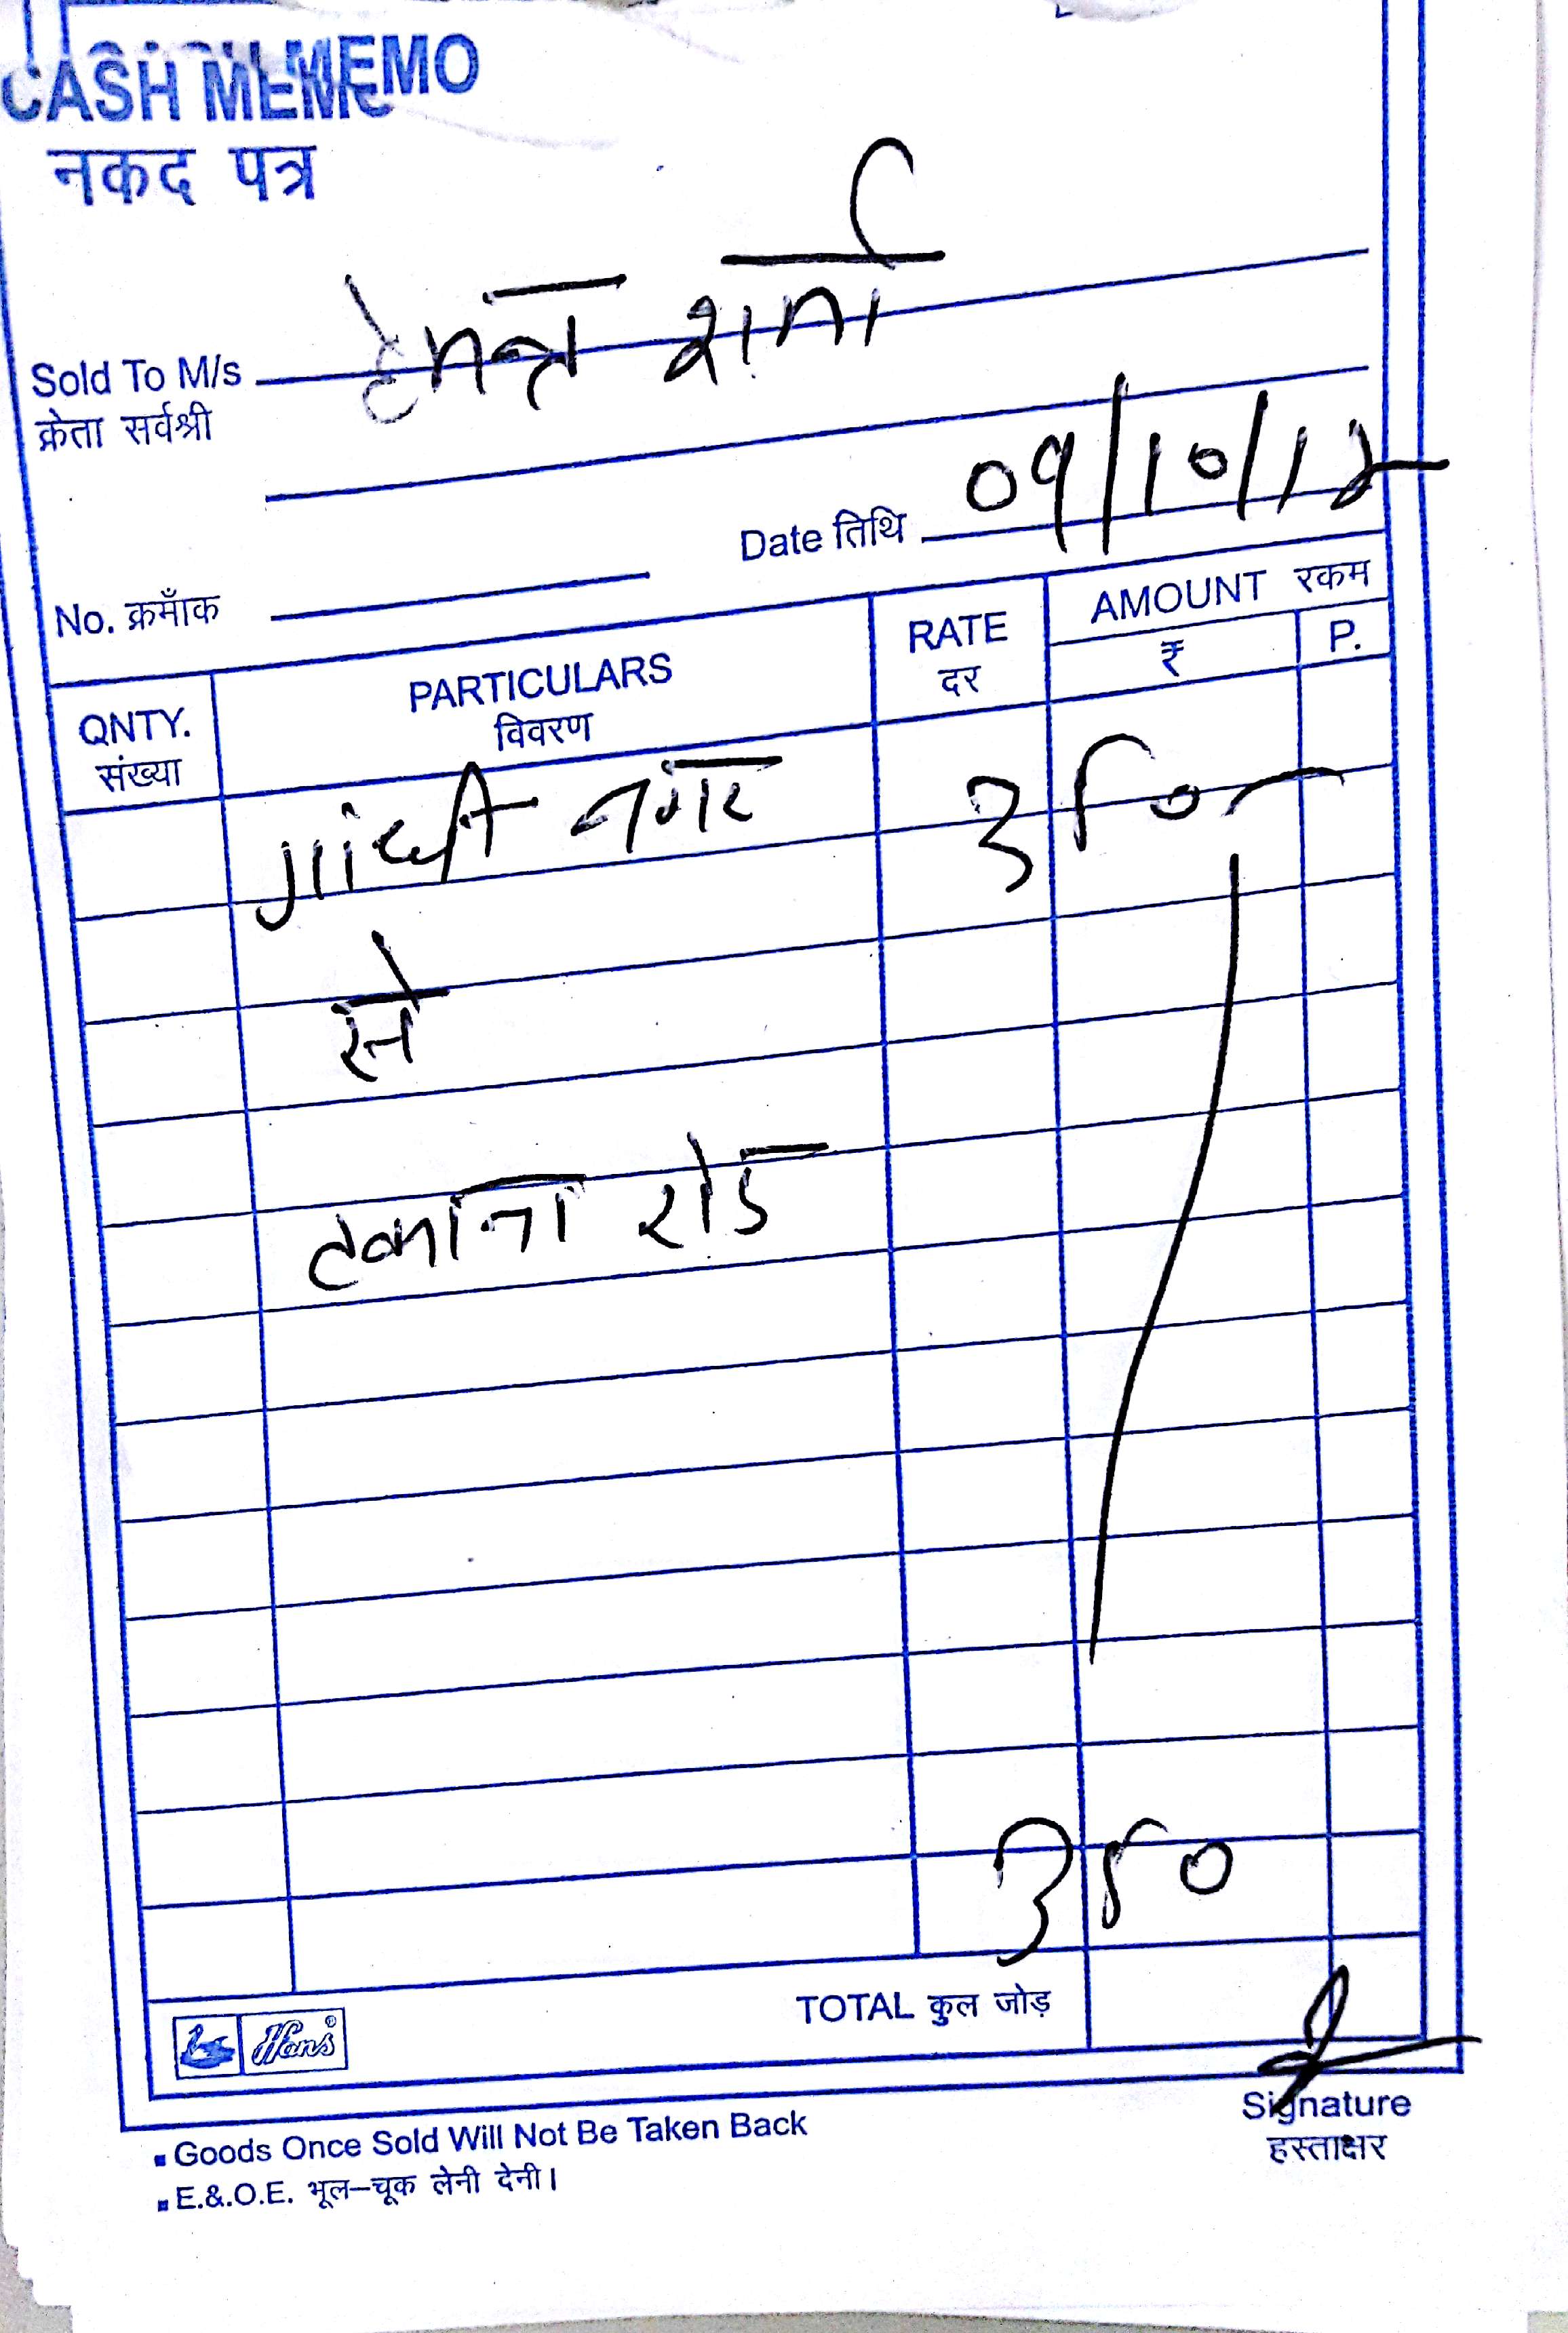 CASH MEMO
नकद पत्र
Sold To M/s हेमन्त शर्मा
क्रेता सर्वश्री
Date तिथि 09/10/12
No. क्रमाँक
QNTY. संख्या PARTICULARS विवरण RATE दर AMOUNT रकम ₹ P.
गांधी नगर
से
रोड
TOTAL कुल जोड़
Hans®
Signature
हस्ताक्षर
Goods Once Sold Will Not Be Taken Back
E.&.O.E. भूल–चूक लेनी देनी।